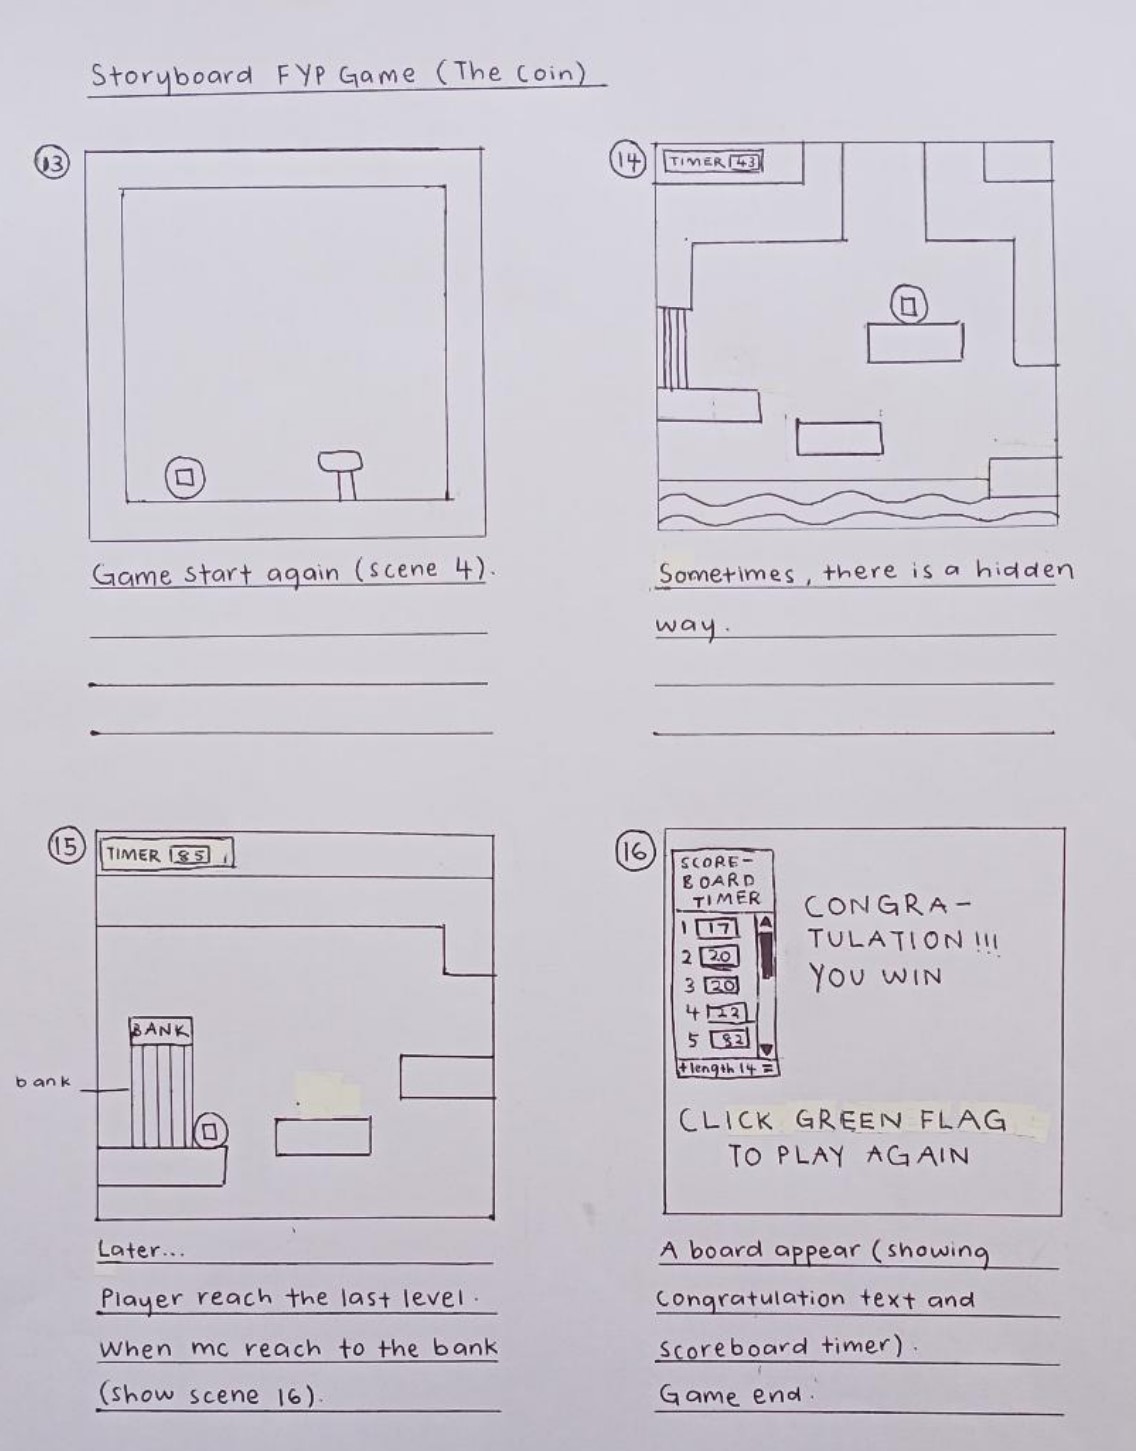 Storyboard FYP Game (The Coin)
13
Game start again (scene 4).
14
TIMER 43
Sometimes, there is a hidden
way.
15
TIMER 85
BANK
bank
Later...
Player reach the last level.
When mc reach to the bank
(show scene 16).
16
SCORE-
BOARD
TIMER
1 17
2 20
3 20
4 22
5 82
+length 14 =
CONGRA-
TULATION!!!
YOU WIN
CLICK GREEN FLAG
TO PLAY AGAIN
A board appear (showing
congratulation text and
scoreboard timer).
Game end.